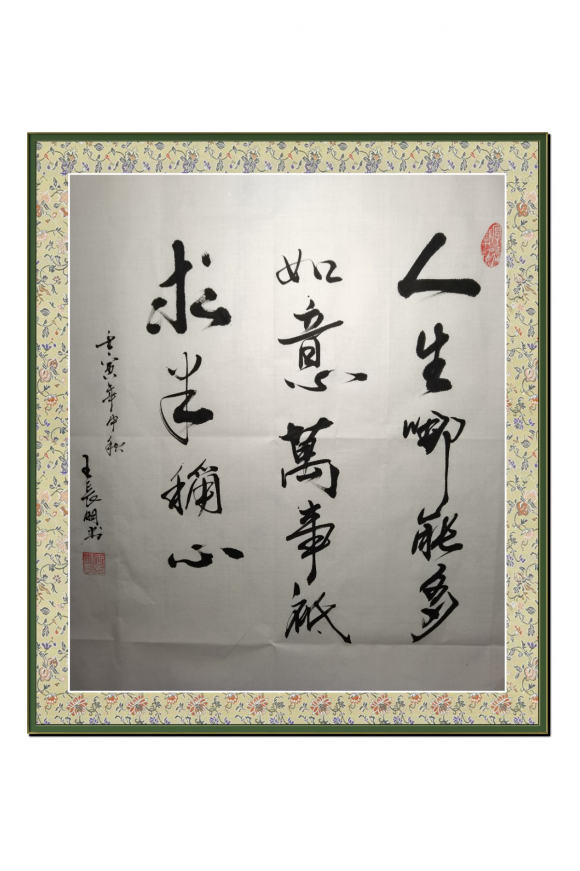 人生哪能多
如意萬事祇
求半稱心
壬寅年中秋
王長明書